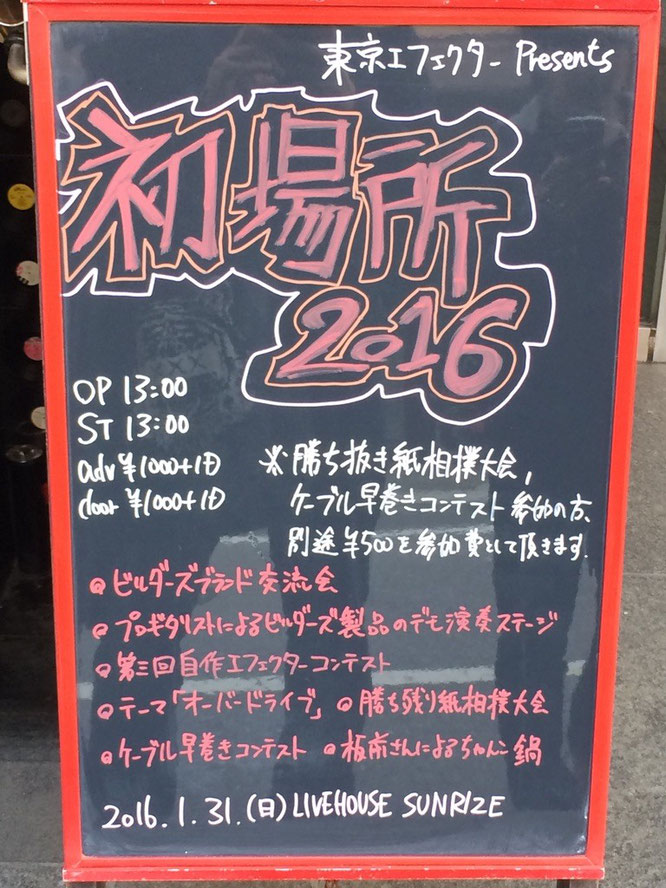 東京エフェクター Presents
初場所
2016
OP 13:00
ST 13:00
adv ¥1000+1D
door ¥1000+1D
※勝ち抜き紙相撲大会,
ケーブル早巻きコンテスト参加の方、
別途¥500を参加費として頂きます.
@ビルダーズブランド交流会
@プロギタリストによるビルダーズ製品のデモ演奏ステージ
@第三回自作エフェクターコンテスト
@テーマ「オーバードライブ」 @勝ち残り紙相撲大会
@ケーブル早巻きコンテスト @板前さんによるちゃんこ鍋
2016.1.31.(日) LIVEHOUSE SUNRIZE